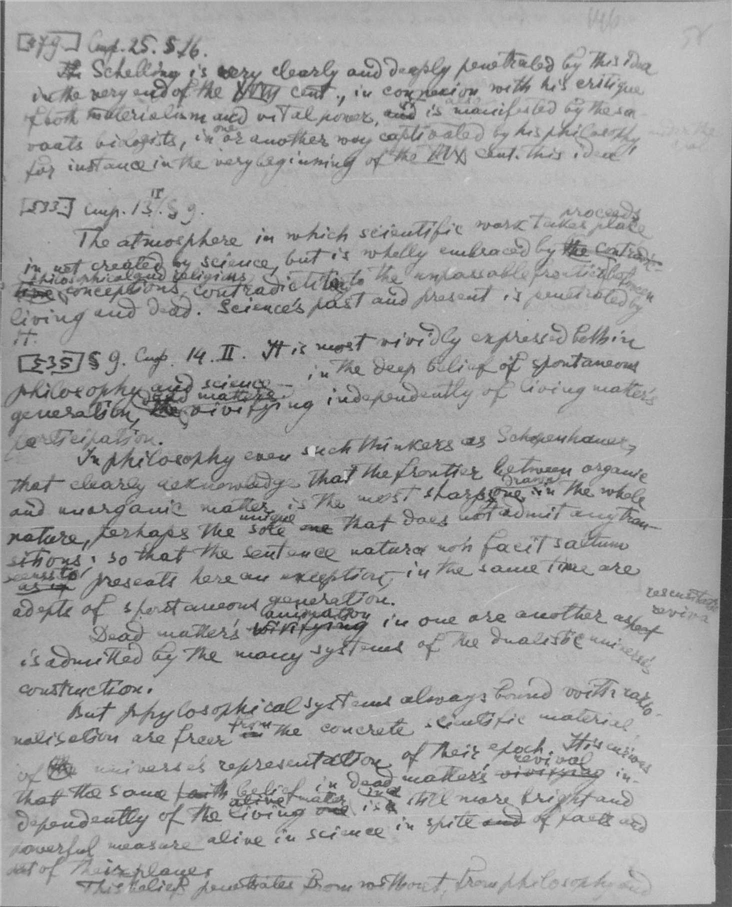 [§79.] Cmp. 25. § 26.
Schelling is very clearly and deeply penetrated by this idea
in the very end of the XVIII cent., in connexion with his critique
of both materialism and vital power, and is also manifested by the sa-
vants biologists, in one or another way captivated by his philosophy
for instance in the very beginning of the XIX cent. this idea
[§33.] Cmp. 13 II. § 9.
proceeds
The atmosphere in which scientific work takes place
in not created by science, but is wholly embraced by the
philosophical and religions
conceptions, contradictite to the unpassable frontier between
living and dead. Science's past and present is penetrated by
it.
[§35] § 9. Cmp. 14. II. It is most vividly expressed both in
philosophy and science — in the deep belief of spontaneous
dead matters
generation, the vivifying independently of living matter's
participation.
In philosophy even such thinkers as Schopenhauer,
that clearly acknowledge that the frontier between organic
drawn
and unorganic matter is the most sharp one in the whole
unique
nature, perhaps the sole one that does not admit any tran-
sitions: so that the sentence natura non facit saltum
seems to
as in preseats here an exception, in the same time are
adepts of spontaneous generation.
animation
Dead matter's vivifying in one are another aspect
is admitted by the many systems of the dualistic universe's
construction.
But phylosophical systems always bound with ratio-
from
nalisation are freer in the concrete scientific material
of universe's representation of their epoch.
revival
that the same faith belief in dead matter's vivifying in-
alive matter
dependently of the living one is still more bright and
powerful measure alive in science in spite and of facts and
out of their planes
This belief penetrates from without, from philosophy and